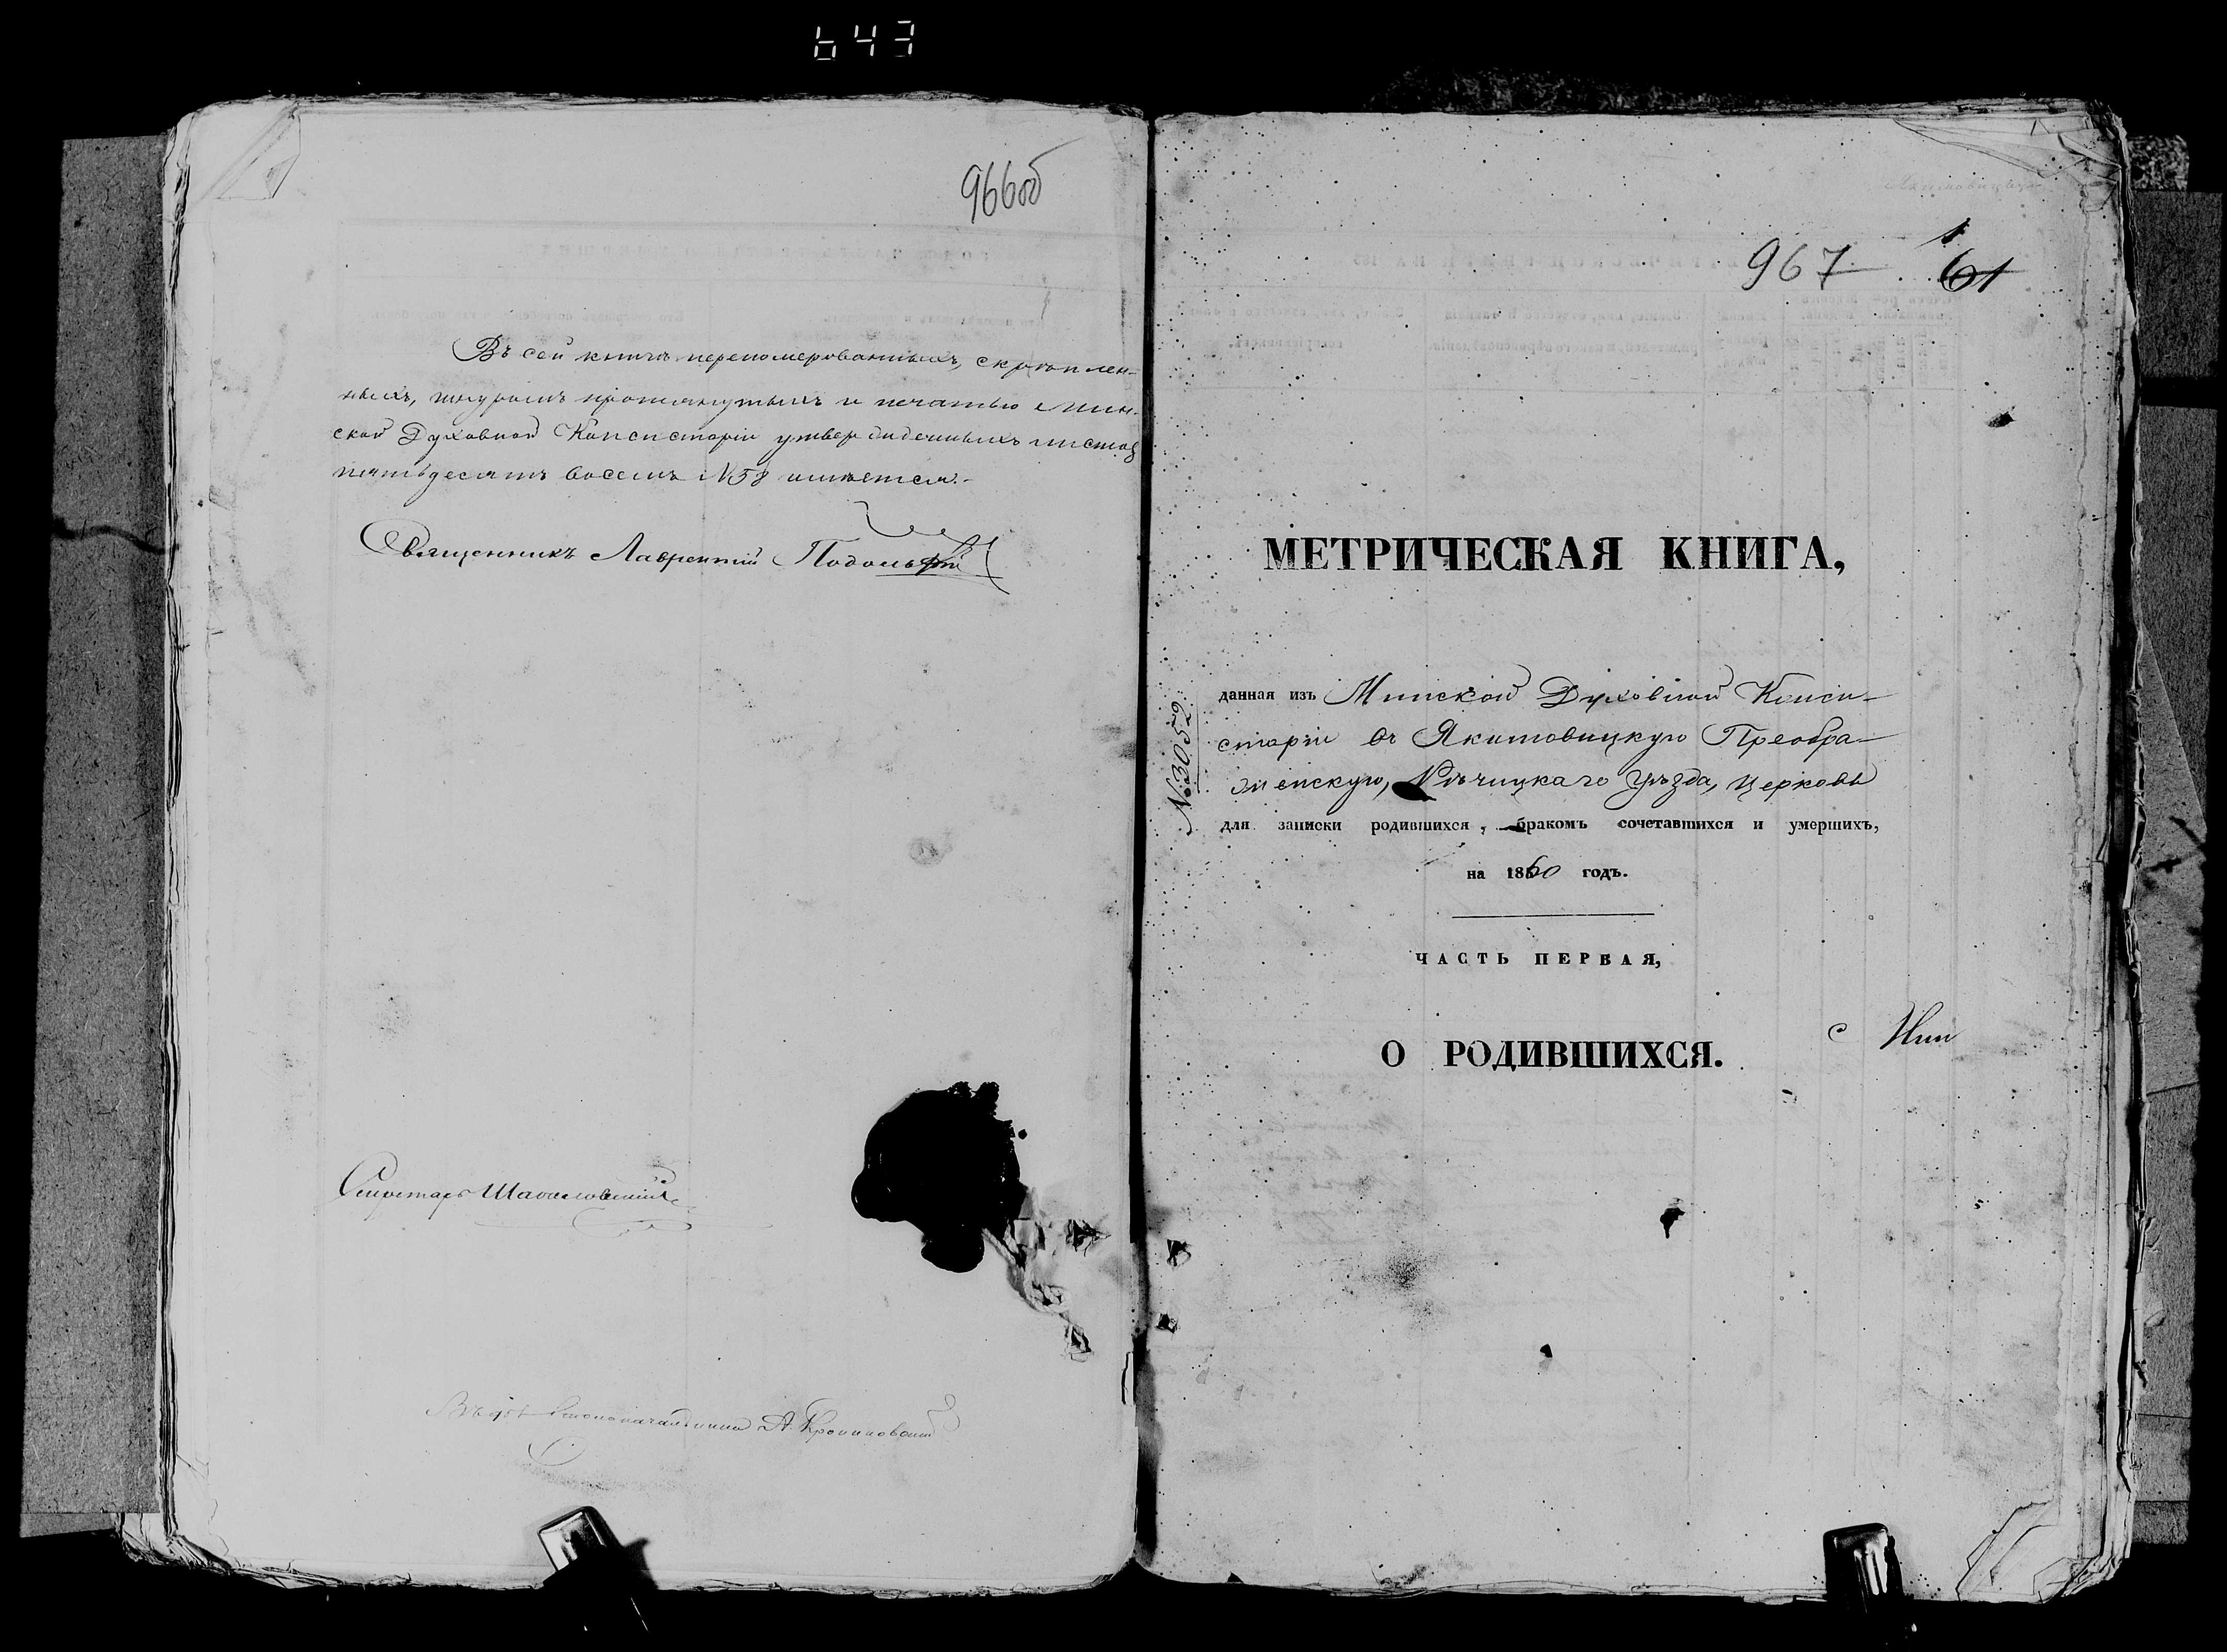 643
966об
Въ сей книгѣ перенумерованныхъ, скрѣплен-
ныхъ, шнуромъ протянутыхъ и печатью Мин-
ской Духовной Консисторіи утвержденныхъ листовъ
пятьдесятъ восемь №58 имѣется.-
Священникъ Лаврентій
Секретарь
Столоначальника А.
967 1 61
МЕТРИЧЕСКАЯ КНИГА,
№ 3052
данная изъ Минской Духовной Конси-
сторіи въ Якимовицкую Преобра-
женскую, Рѣчицкаго уѣзда, церковь
для записки родившихся, бракомъ сочетавшихся и умершихъ,
на 1860 годъ.
ЧАСТЬ ПЕРВАЯ,
О РОДИВШИХСЯ.